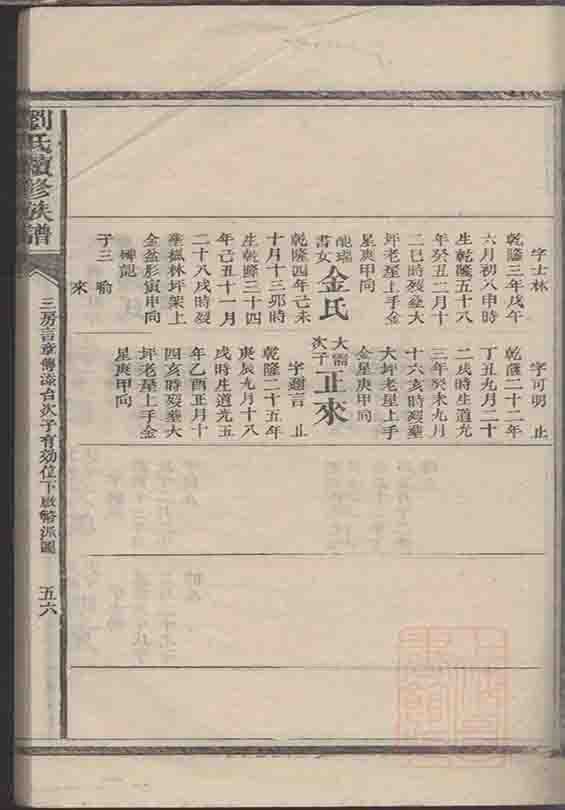 字士林
乾隆三年戊午
六月初八申時
生乾隆五十八
年癸丑二月十
二巳時歿塟大
坪老屋上手金
星庚甲向
龍瑞書女
金氏
乾隆四年己未
十月十三卯時
生乾隆三十四
年己丑十一月
二十八戌時歿
塟楓林坪架上
金盆形寅申向
碑記
子三
來
字可明 止
乾隆二十二年
丁丑九月二十
二戌時生道光
三年癸未九月
十六亥時歿塟
大坪老屋上手
金星庚甲向
大
次子
正來
字謝言 止
乾隆二十五年
庚辰九月十八
戌時生道光五
年乙酉正月十
四亥時歿塟大
坪老屋上手金
星庚甲向
劉氏續修族譜
三房言章傳添台次子有効位下
派圖
五六